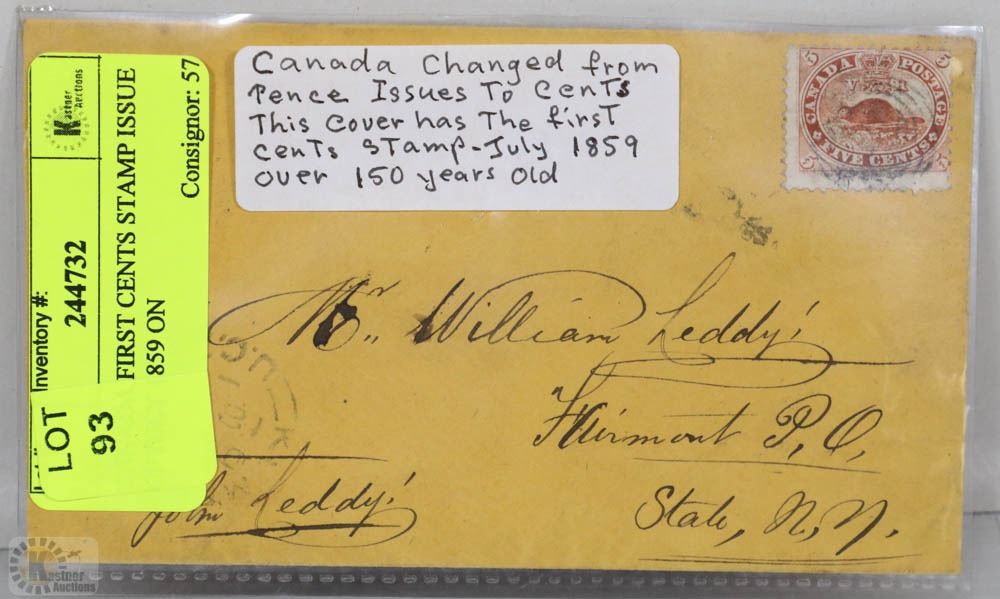 Canada Changed from
Pence Issues To Cents
This Cover has The first
Cents Stamp-July 1859
over 150 years old
5 CANADA POSTAGE 5
5 FIVE CENTS 5
Kastner
Auctions
Consignor: 57
FIRST CENTS STAMP ISSUE
859 ON
Inventory #:
244732
LOT
93
Mr. William Leddy
Fairmont P, O,
State, N, Y.
John Leddy
U.C.
Kastner
Auctions